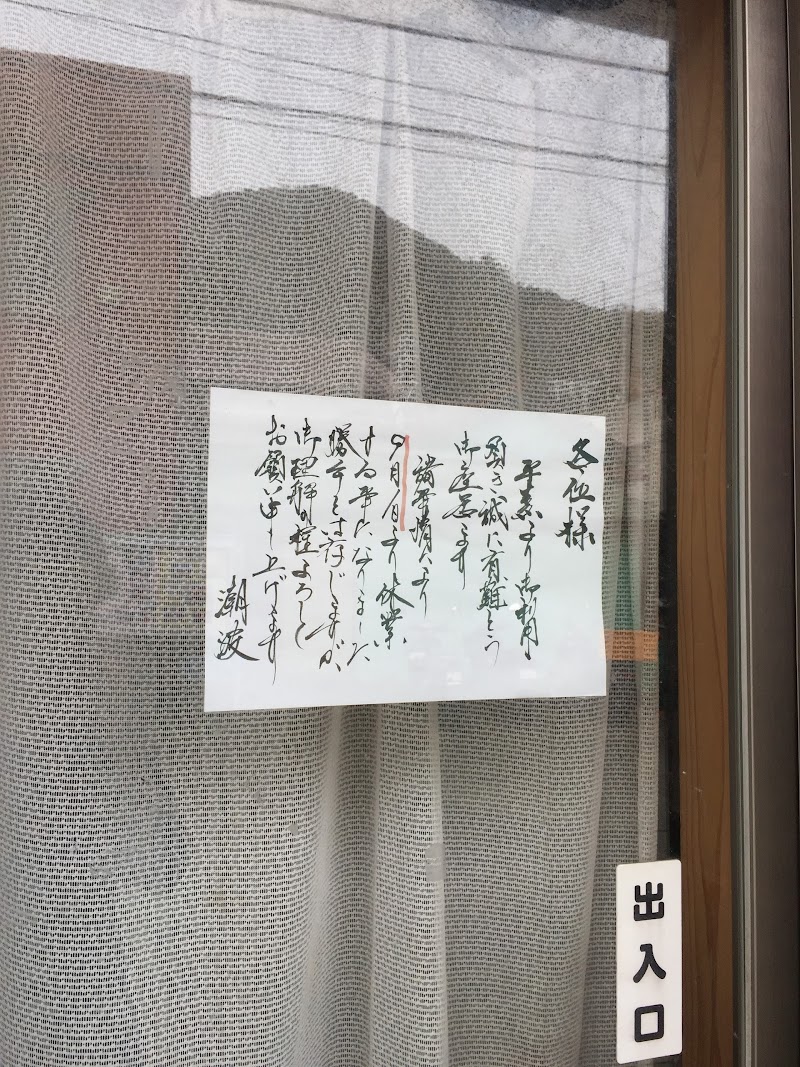 各位様
平素より御利用
頂き、誠に有難とう
御座居ます
諸事情により
9月1日より休業
する事になりました
勝手とは存じますが、
御理解の程よろしく
お願い申し上げます
潮波
出入口